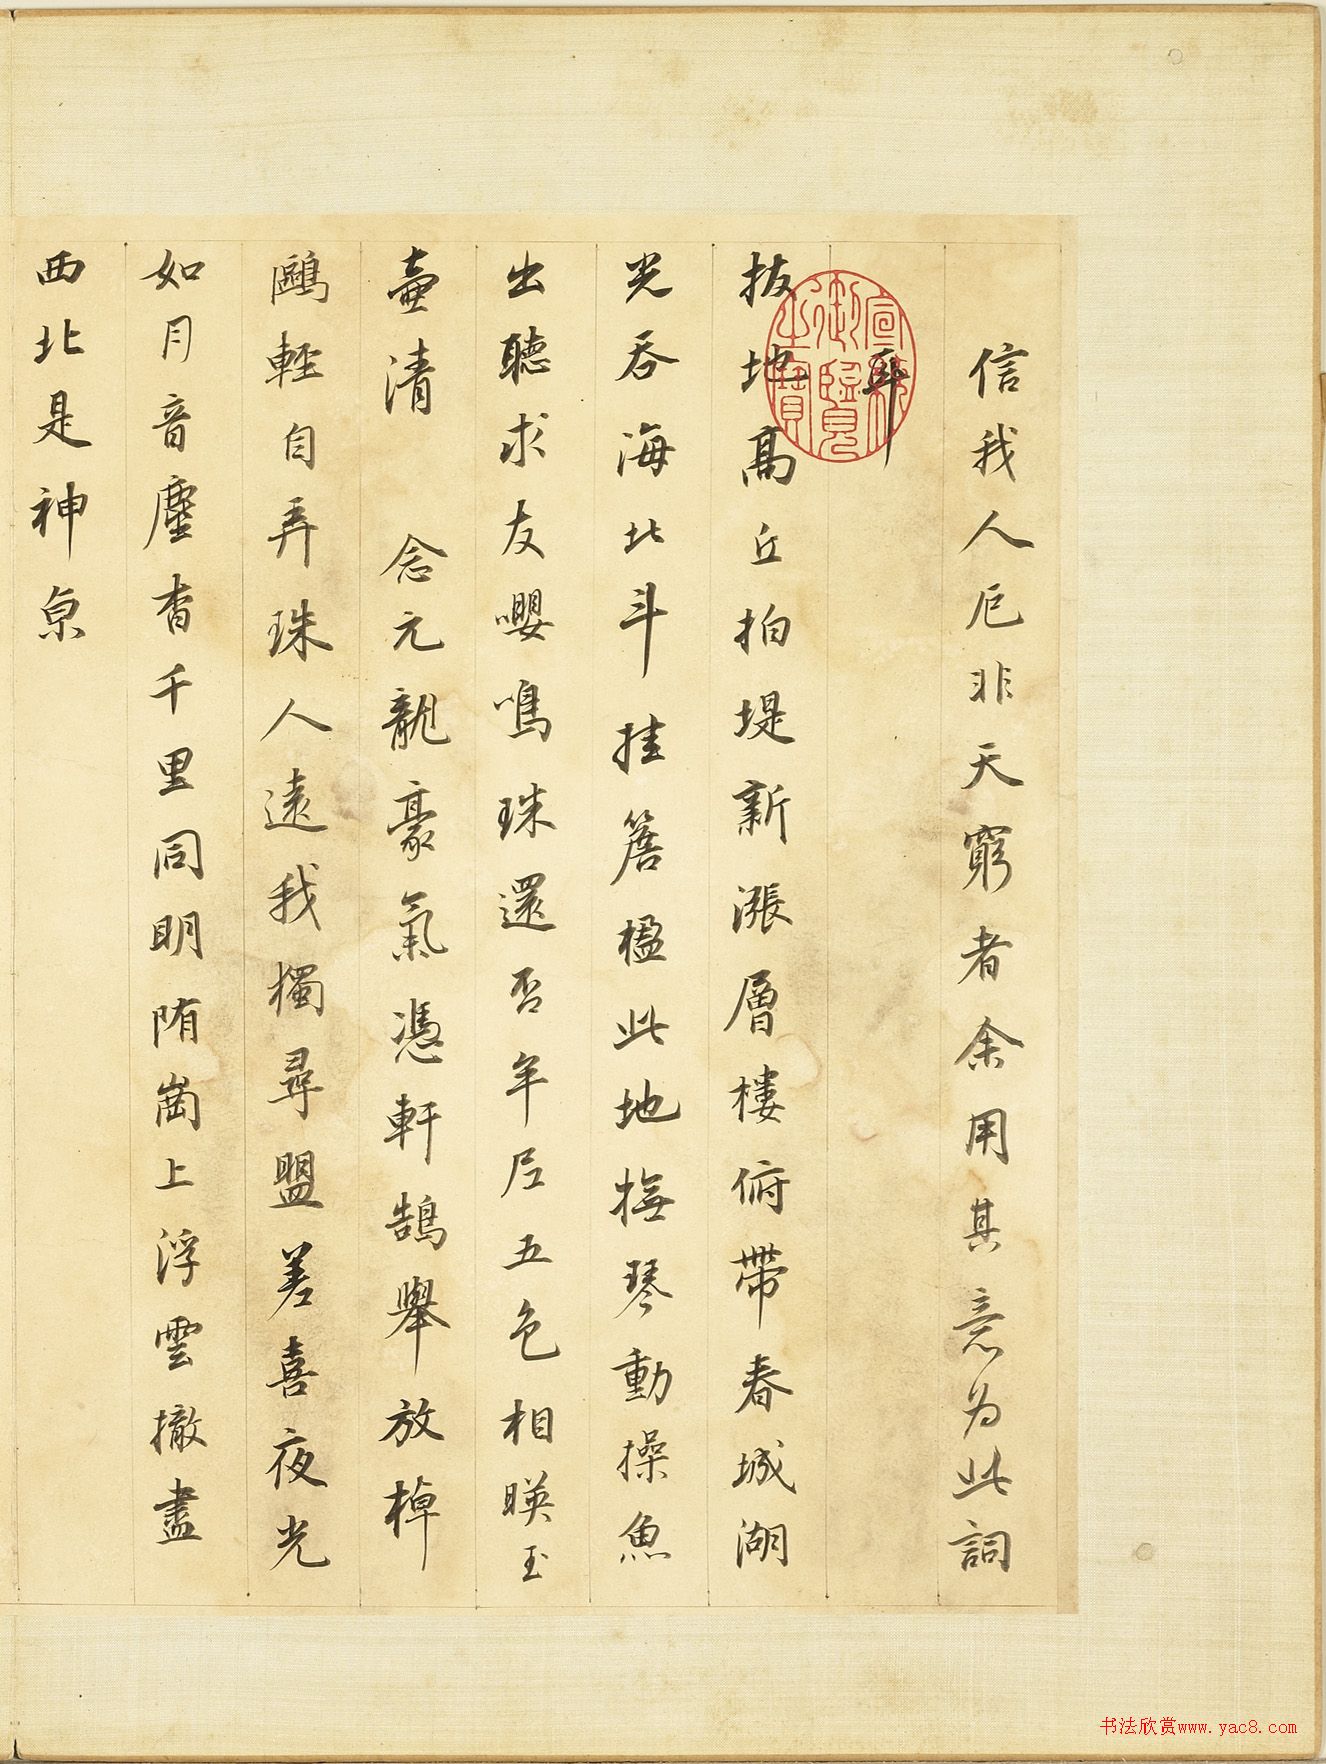 信我人厄非天窮者余用其意為此詞
耳
拔地高丘拍堤新漲層樓俯帶春城湖
光吞海北斗挂簷楹此地撫琴動操魚
出聽求友嚶鳴珠還否年后五色相暎玉
壺清　念元龍豪氣憑軒鵠舉放棹
鷗輕自弄珠人遠我獨尋盟差喜夜光
如月音塵杳千里同明陏崗上浮雲撤盡
西北是神京
宣統御覽之寶
书法欣赏www.yac8.com